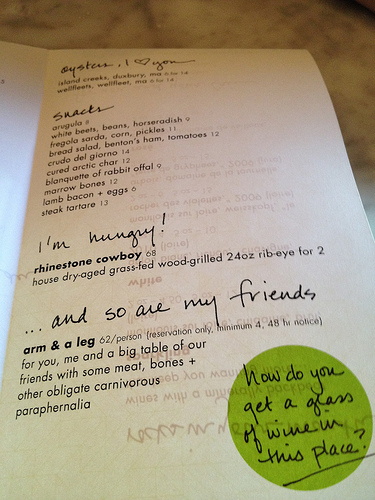 oysters, I ♡ you
island creeks, duxbury, ma 6 for 14
wellfleets, wellfleet, ma 6 for 14
snacks
arugula 8
white beets, beans, horseradish 9
fregola sarda, corn, pickles 11
bread salad, benton's ham, tomatoes 12
crudo del giorno 14
cured arctic char 12
blanquette of rabbit offal 9
marrow bones 12
lamb bacon + eggs 6
steak tartare 13
I'm hungry!
rhinestone cowboy 68
house dry-aged grass-fed wood-grilled 24oz rib-eye for 2
... and so are my friends
arm & a leg 62/person (reservation only, minimum 4, 48 hr notice)
for you, me and a big table of our
friends with some meat, bones +
other obligate carnivorous
paraphernalia
how do you
get a glass
of wine in
this place?